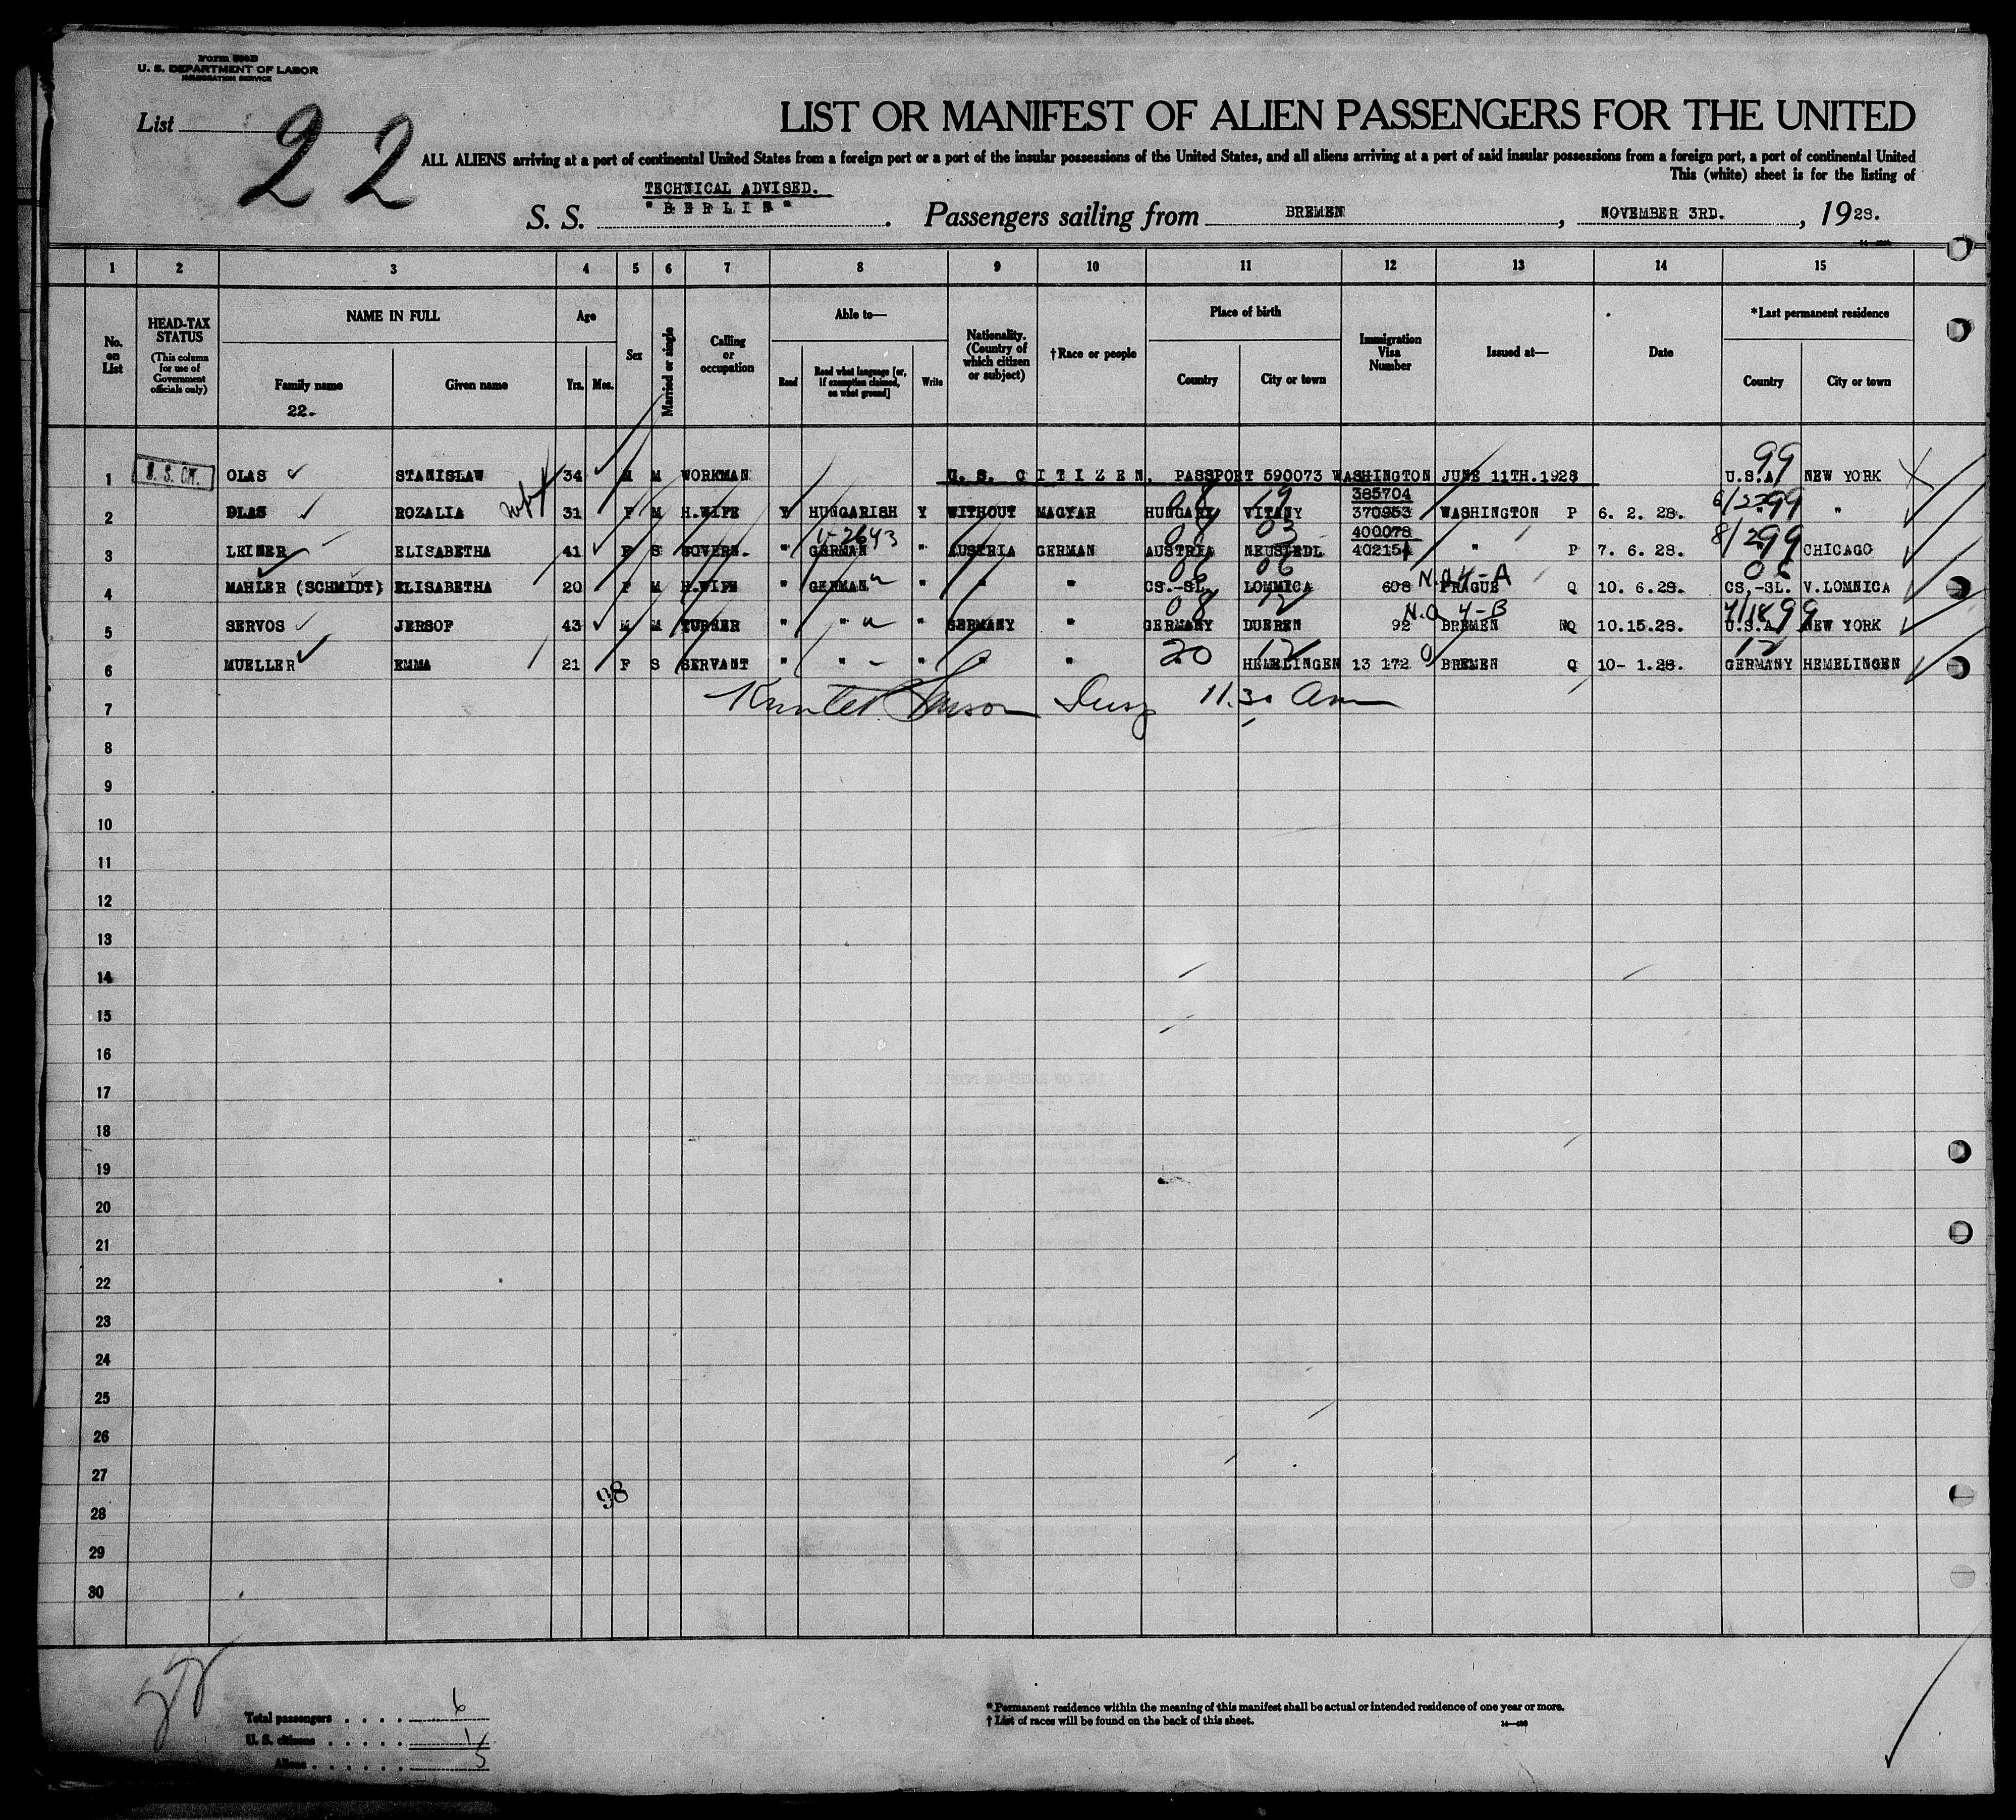 Form 500B
U. S. DEPARTMENT OF LABOR
IMMIGRATION SERVICE
List 22
LIST OR MANIFEST OF ALIEN PASSENGERS FOR THE UNITED
ALL ALIENS arriving at a port of continental United States from a foreign port or a port of the insular possessions of the United States, and all aliens arriving at a port of said insular possessions from a foreign port, a port of continental United
This (white) sheet is for the listing of
TECHNICAL ADVISED.
S. S. "BERLIN". Passengers sailing from BREMEN, NOVEMBER 3RD., 1928.
1 2 3 4 5 6 7 8 9 10 11 12 13 14 15
No. on List
HEAD-TAX STATUS (This column for use of Government officials only)
NAME IN FULL
Family name
Given name
22.
Age
Yrs. Mos.
Sex
Married or single
Calling or occupation
Able to—
Read
Read what language [or, if exemption claimed, on what ground]
Write
Nationality. (Country of which citizen or subject)
†Race or people
Place of birth
Country
City or town
Immigration Visa Number
Issued at—
Date
*Last permanent residence
Country
City or town
99
1 U. S. CIT. OLAS STANISLAW 34 M M WORKMAN U. S. CITIZEN, PASSPORT 590073 WASHINGTON JUNE 11TH.1928 U.S.A. NEW YORK
08 19 385704 6/22 99
2 OLAS ROZALIA 31 F M H.WIFE Y HUNGARISH Y WITHOUT MAGYAR HUNGARY VITANY 370953 WASHINGTON P 6. 2. 28. " "
V-2643 08 03 400078 8/2 99
3 LEINER ELISABETHA 41 F S GOVERN. " GERMAN " AUSTRIA GERMAN AUSTRIA NEUSIEDL 402154 " P 7. 6. 28. " CHICAGO
06 06 N.Q 4-A 06
4 MAHLER (SCHMIDT) ELISABETHA 20 F M H.WIFE " GERMAN " " " CS.-SL. LOMMICA 608 PRAGUE Q 10. 6.28. CS.-SL. V.LOMNICA
08 12 N.Q 4-B 4/18 99
5 SERVOS JERSOF 43 M M TURNER " " " GERMANY " GERMANY DUEREN 92 BREMEN NQ 10.15.28. U.S.A. NEW YORK
20 12 12
6 MUELLER EMMA 21 F S SERVANT " " " " " HEMELINGEN 13 172 BREMEN Q 10- 1.28. GERMANY HEMELINGEN
7 11.30 am
8
9
10
11
12
13
14
15
16
17
18
19
20
21
22
23
24
25
26
27
98
28
29
30
Total passengers 6
U. S. citizens 1
Aliens 5
*Permanent residence within the meaning of this manifest shall be actual or intended residence of one year or more.
† List of races will be found on the back of this sheet.